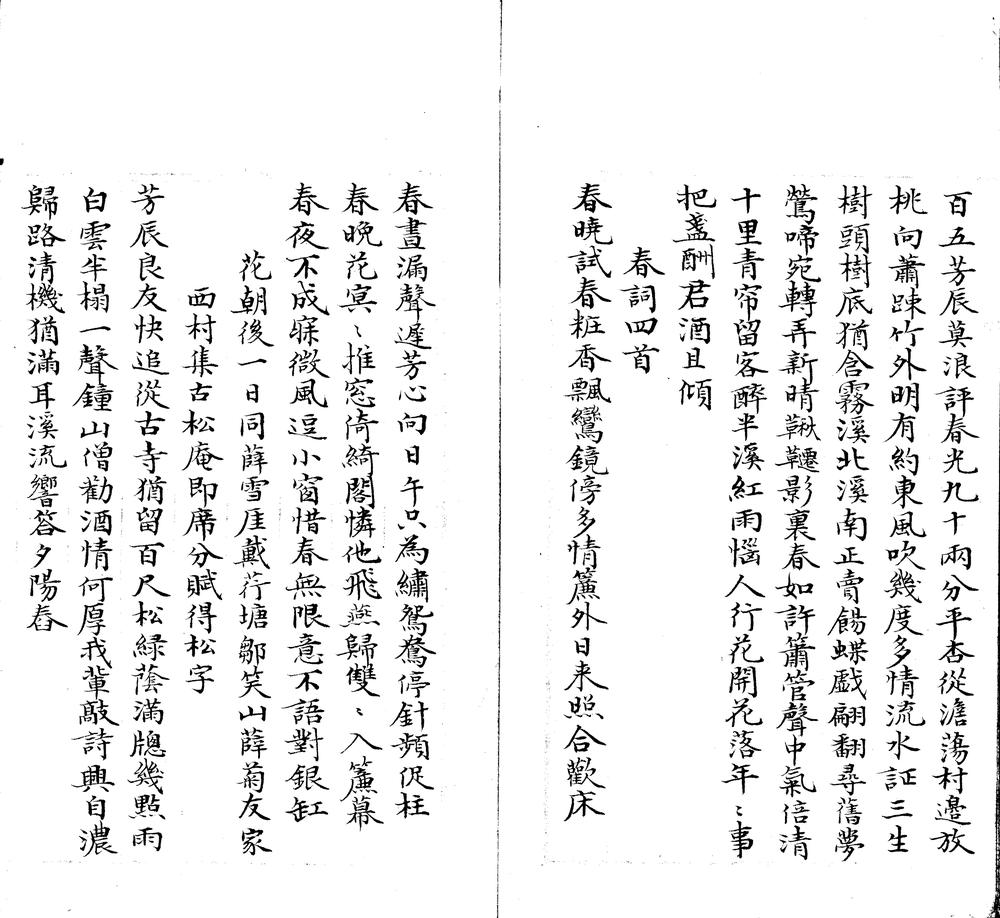 百五芳辰莫浪評春光九十兩分平杏從澹蕩村邊放
桃向蕭踈竹外明有約東風吹幾度多情流水証三生
樹頭樹底猶含霧溪北溪南正賣餳蝶戯翩翻尋舊夢
鶯啼宛轉弄新晴鞦韆影裏春如許簫管聲中氣倍清
十里青帘留客醉半溪紅雨惱人行花開花落年〻事
把盞酬君酒且傾
春詞四首
春曉試春粧香飄鸞鏡傍多情簾外日来照合歡床
春晝漏聲遲芳心向日午只為繡鴛鴦停針頻促柱
春晚花㝠〻推窓倚綺閣憐他飛燕歸雙〻入簾幕
春夜不成寐微風逗小窗惜春無限意不語對銀缸
花朝後一日同薛雪厓戴荇塘鄒笑山薛菊友家
西村集古松庵即席分賦得松字
芳辰良友快追從古寺猶留百尺松緑蔭滿牕幾點雨
白雲半榻一聲鐘山僧勸酒情何厚我輩敲詩興自濃
歸路清機猶滿耳溪流響答夕陽舂